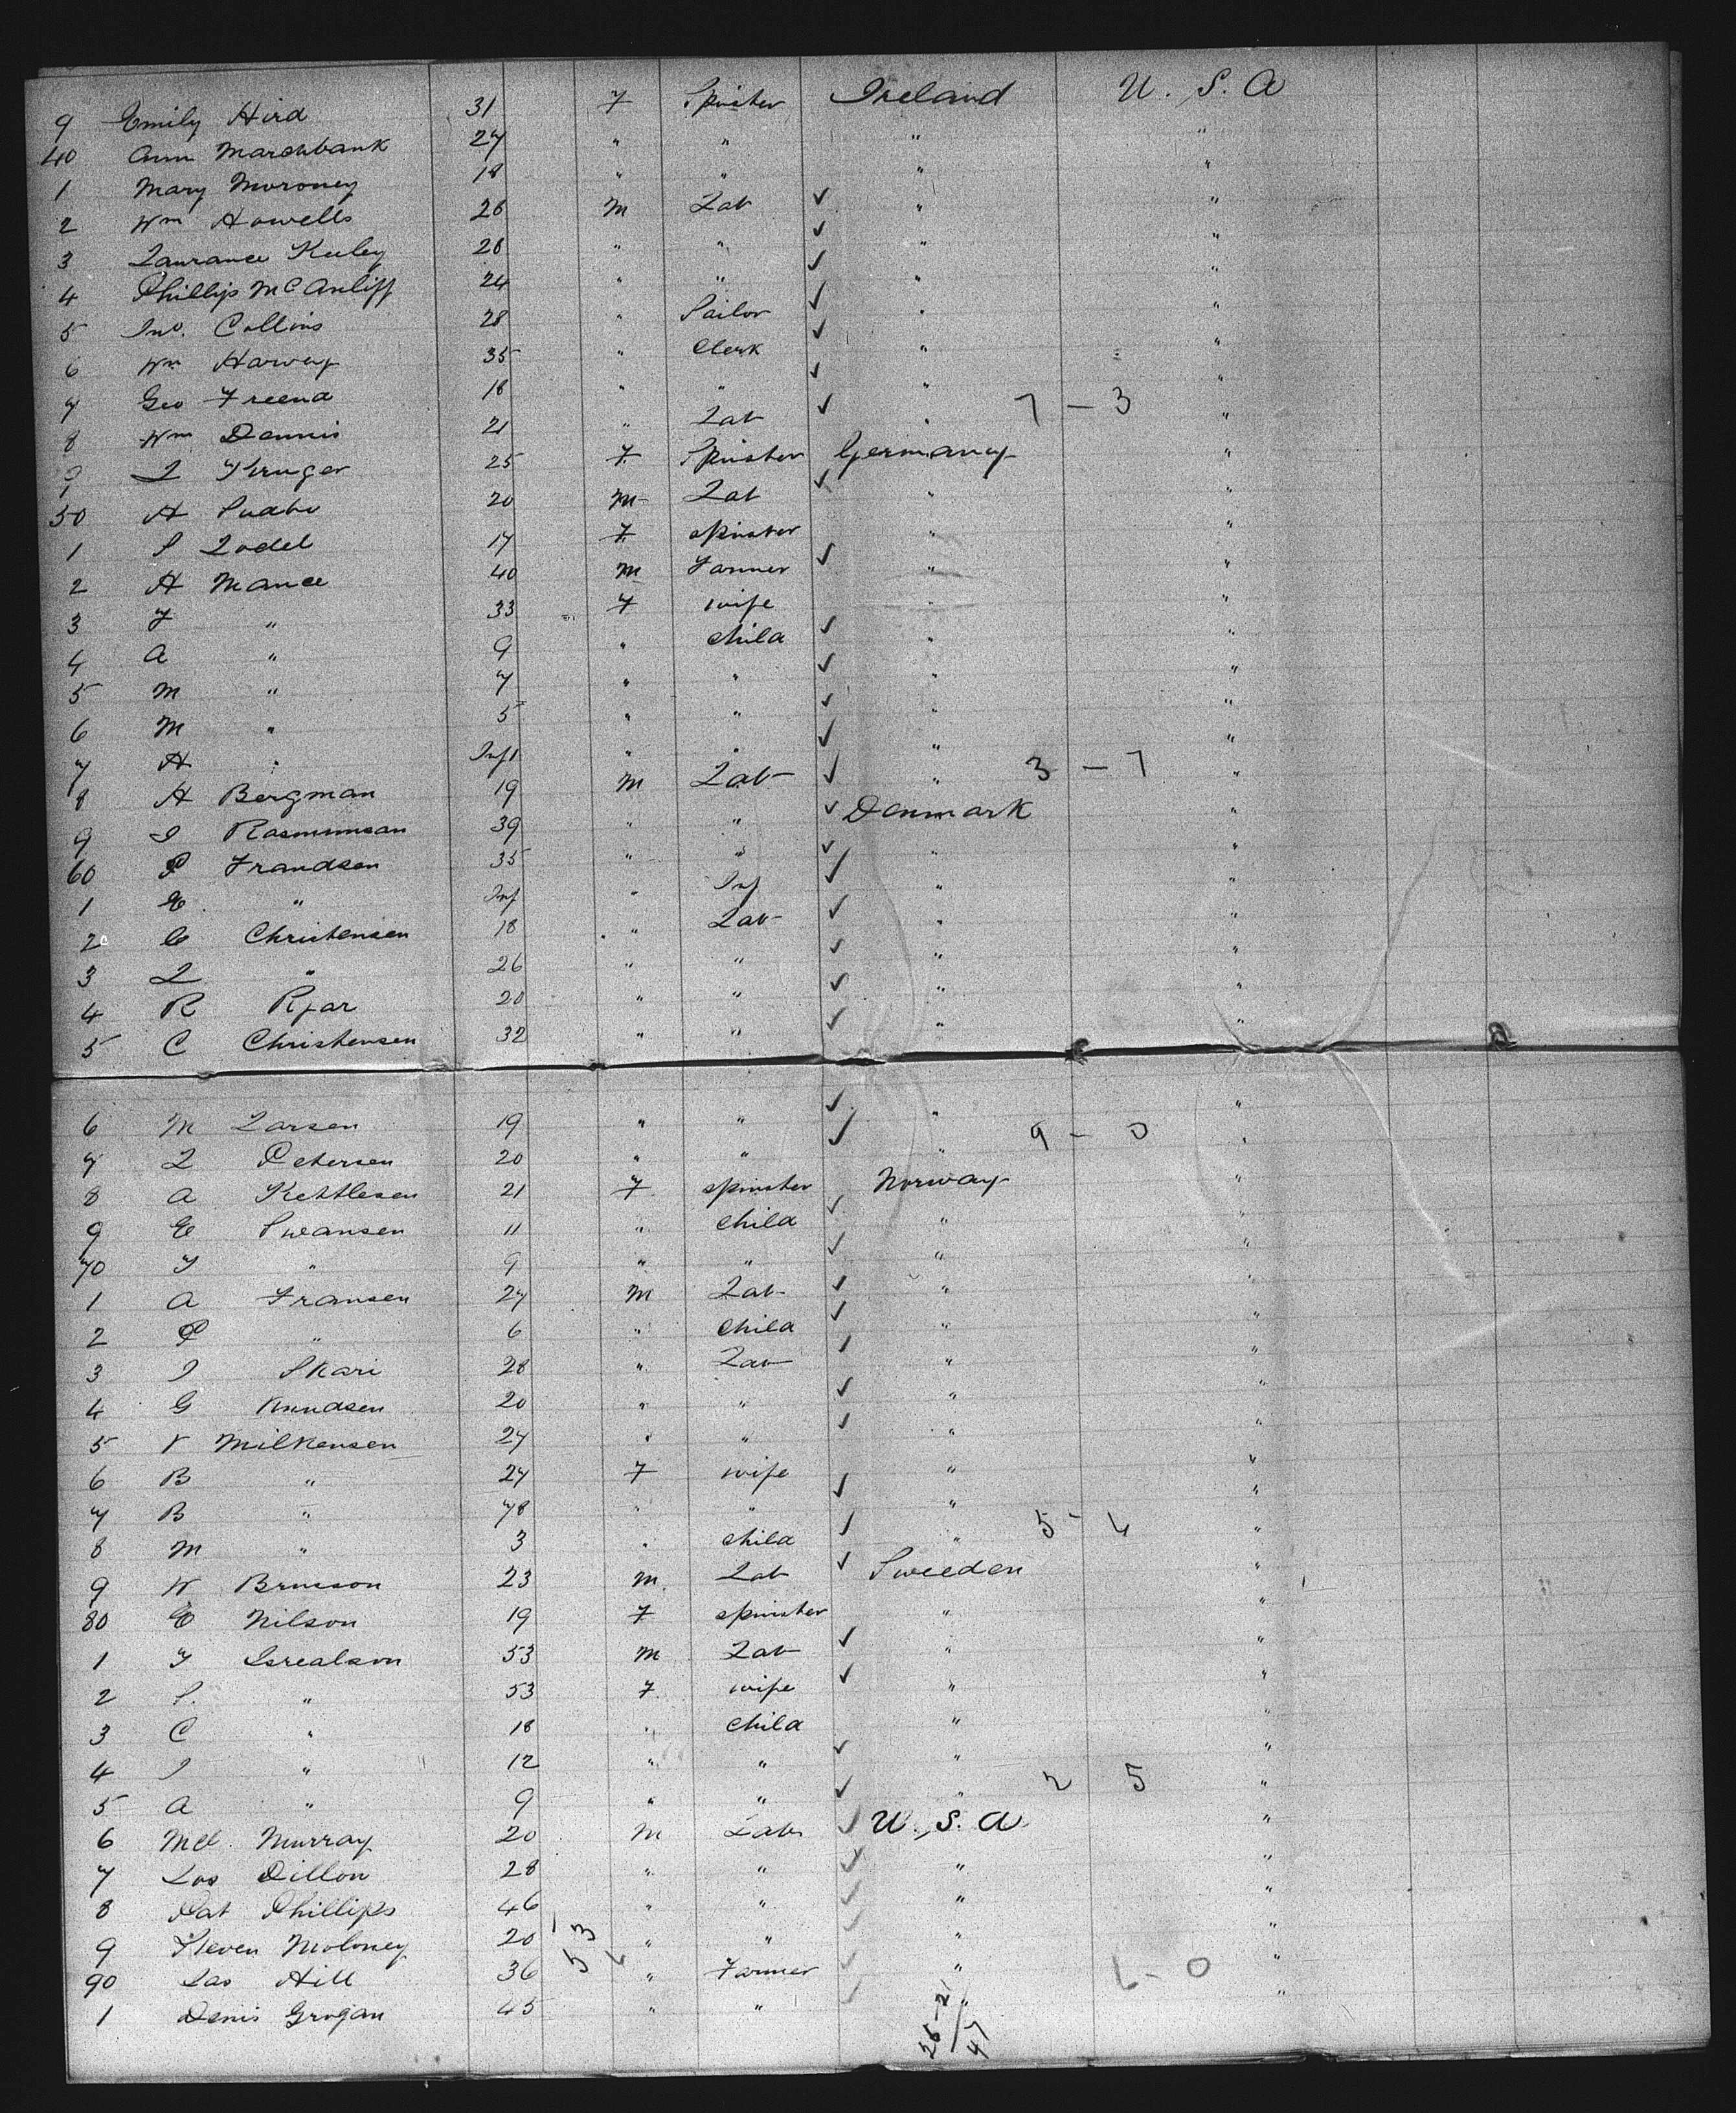 9 Emily Hird 31 F Spinster Ireland U. S. A
40 Ann Marchbank 27 " " " "
1 Mary Moroney 18 " " " "
2 Wm Howells 26 M Lab ✓ " "
3 Laurance Keeley 28 " " ✓ " "
4 Phillips McAuliff 24 " " ✓ " "
5 Jno. Collins 28 " Sailor ✓ " "
6 Wm Harvey 35 " Clerk ✓ " "
7 Geo Freend 18 " " ✓ " "
8 Wm Dennis 21 " Lab ✓ " 7 - 3 "
9 L Kruger 25 F Spinster Germany "
50 H Suabo 20 M Lab ✓ " "
1 S Lodel 17 F Spinster " "
2 H Mance 40 M Farmer ✓ " "
3 F " 33 F wife " "
4 A " 9 " child ✓ " "
5 M " 7 " " ✓ " "
6 M " 5 " " ✓ " "
7 H " Inft " " ✓ " "
8 H Bergman 19 M Lab ✓ " 3 - 7 "
9 I Rasmunsan 39 " " ✓ Denmark "
60 P Frandsen 35 " " ✓ " "
1 E " Inf " Inf ✓ " "
2 C Christensen 18 " Lab ✓ " "
3 L " 26 " " ✓ " "
4 R Rjar 20 " " ✓ " "
5 C Christensen 32 " " ✓ " "
6 M Larsen 19 " " ✓ " "
7 L Petersen 20 " " ✓ " 9 - 0 "
8 A Kettlesen 21 F spinster Norway "
9 E Swansen 11 " child ✓ " "
70 F " 9 " " ✓ " "
1 A Fransen 27 M Lab ✓ " "
2 P " 6 " child ✓ " "
3 I Skari 28 " Lab ✓ " "
4 G Knudsen 20 " " ✓ " "
5 Milkensen 27 " " ✓ " "
6 B " 27 F wife " "
7 B " 78 " " ✓ " "
8 M " 3 " child ✓ " 5 - 6 "
9 W Brusson 23 M. Lab ✓ Sweeden "
80 E Nilson 19 F spinster " "
1 F Isrealson 53 M Lab ✓ " "
2 S. " 53 F. wife ✓ " "
3 C " 18 " child " "
4 I " 12 " " ✓ " "
5 A " 9 " " ✓ " 2 5 "
6 Ml. Murray 20 M Lab ✓ U. S. A. "
7 Jas Dillon 28 " " ✓ " "
8 Pat Phillips 46 " " ✓ " "
9 Steven Moloney 20 " " ✓ " "
90 Jas Hill 36 " Farmer ✓ " 6 - 0 "
1 Denis Grogan 45 " " ✓ " "
53
6
26-21
47